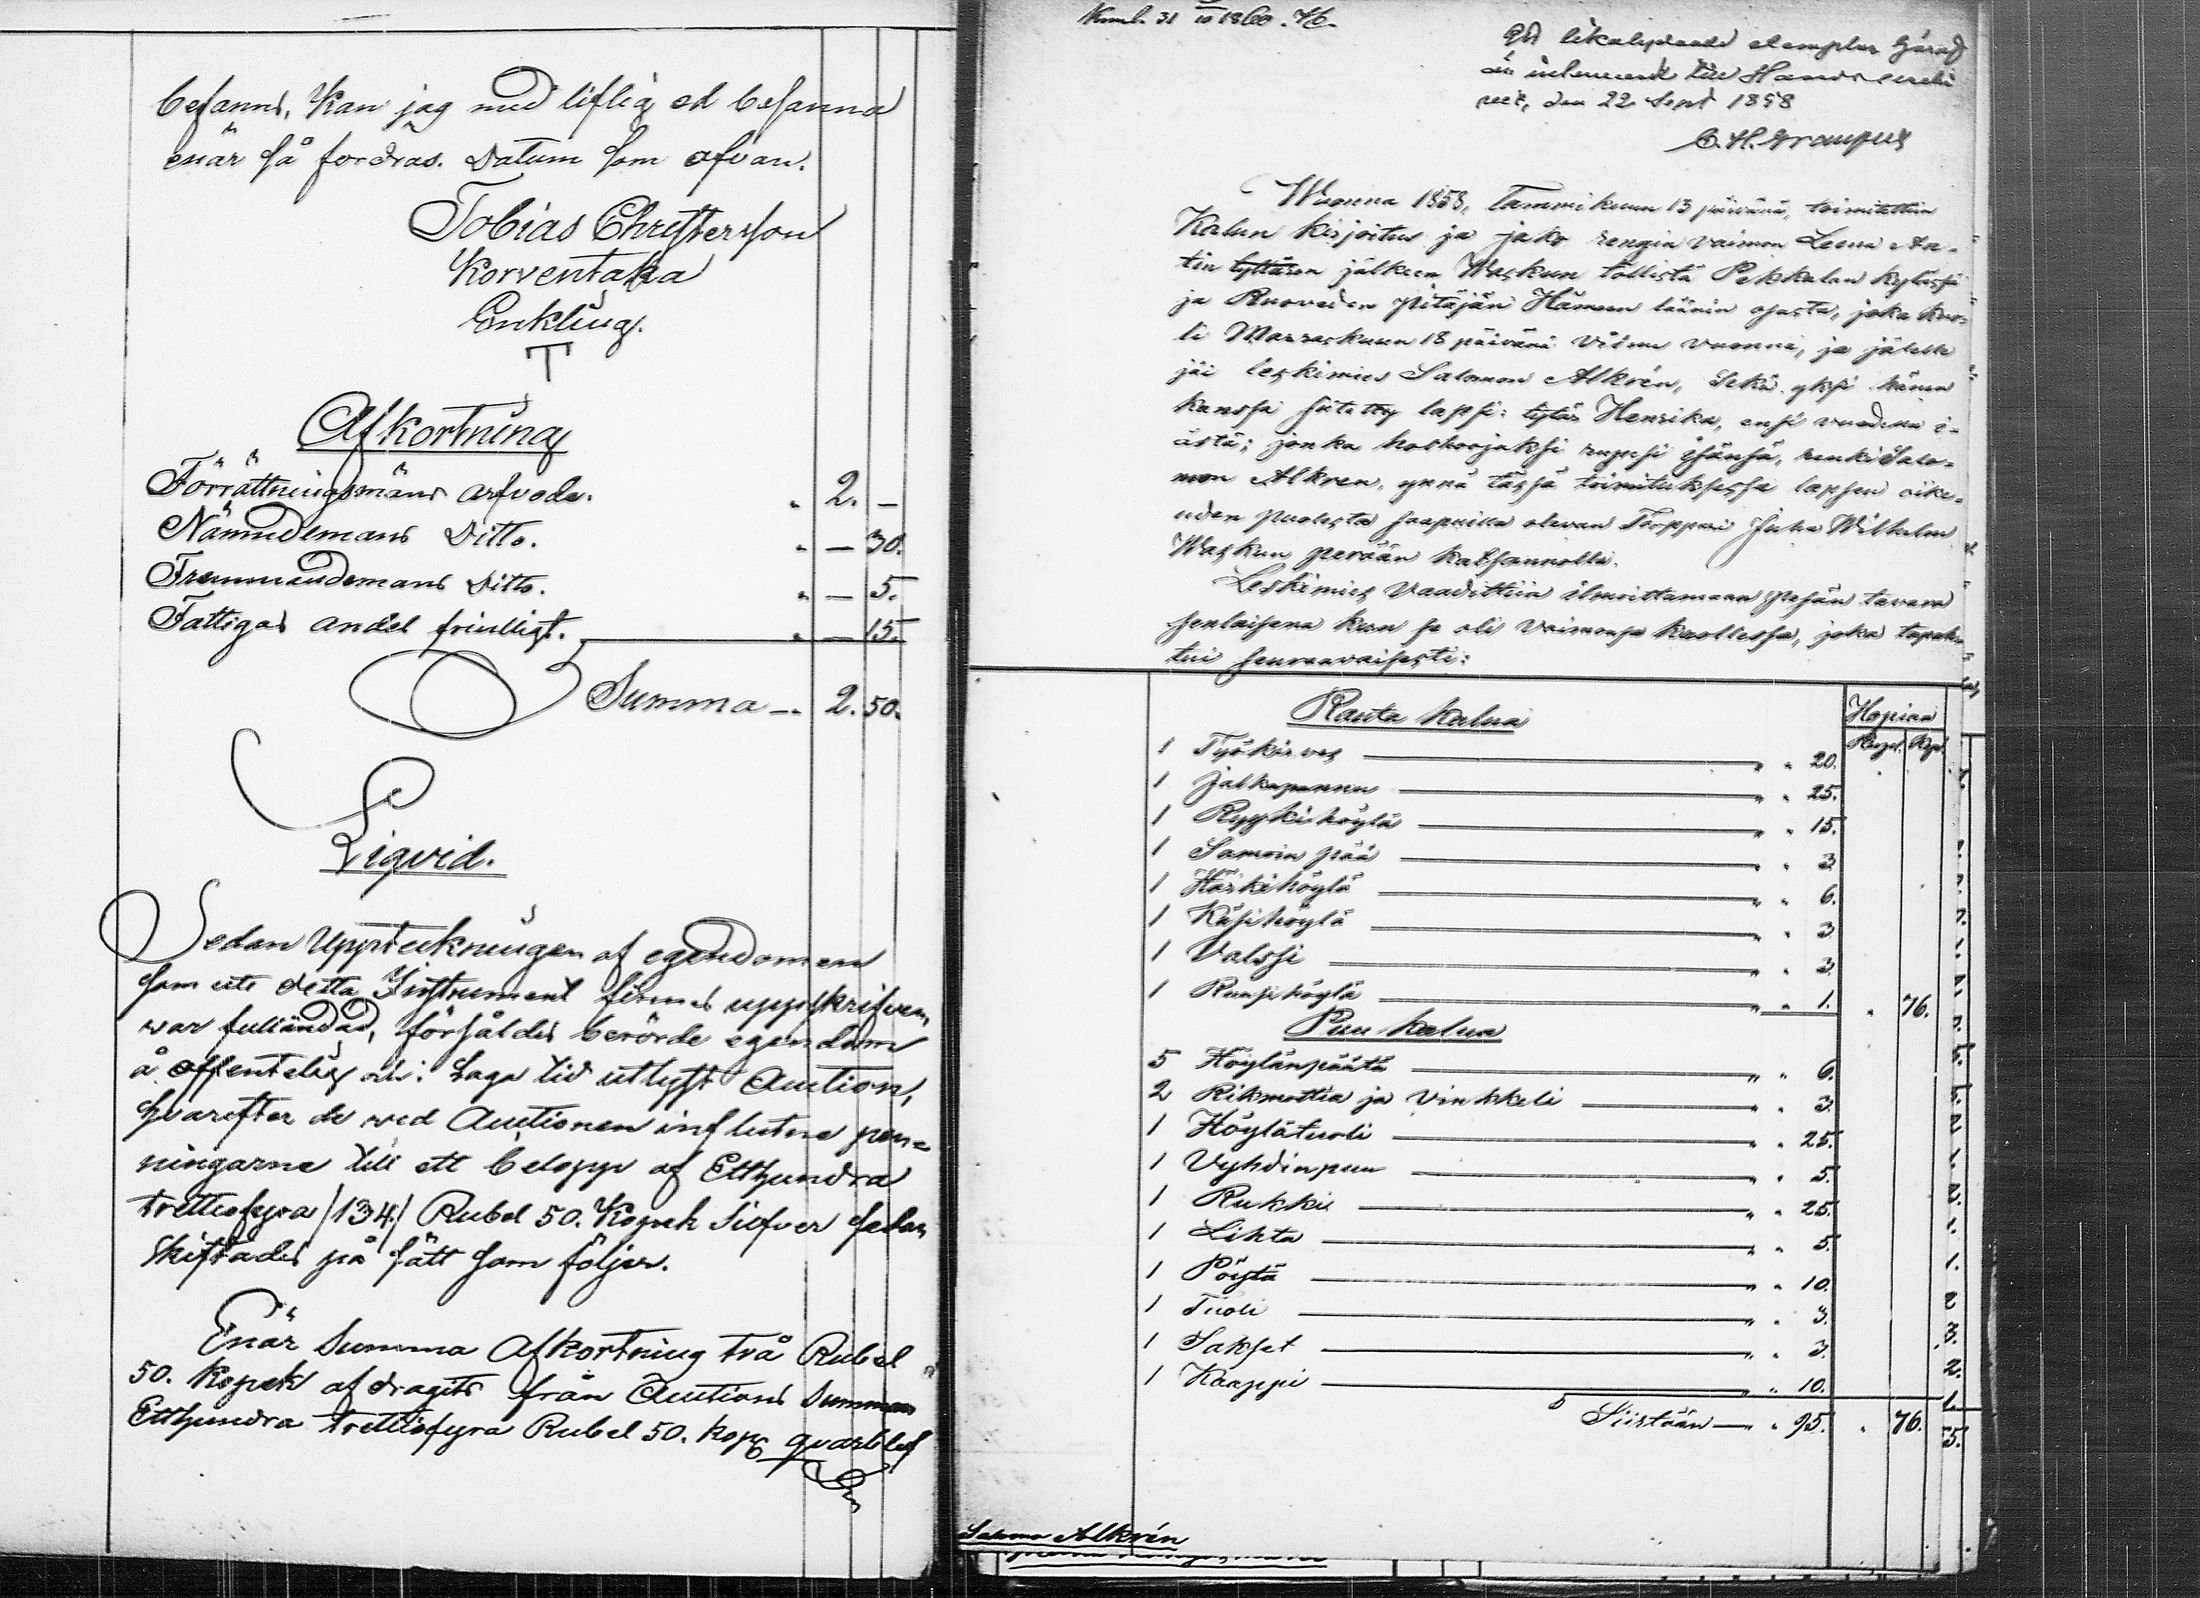 befanns, kan jag med liflig ed befanna
enär så fordras. Datum som ofvan.
Tobias Christersson
Korventaka
Enkling.
T
Afkortning
Förrättningsmäns arfvode. " 2. —
Nämndemans Ditto. " — 30.
Fremmandemans Ditto. " — 5.
Fattigas andel friwilligt. " — 15.
Summa — " 2. 50.
Liqvid.
Sedan Uppteckningen af egendomen
som uti detta Instrument finnes uppskrifven,
war fulländad, försåldes berörde egendom
å offentelig och i Laga tid utlyst Auction,
hvarefter de wid Auctionen influtne pen-
ningarne till ett belopp af Etthundra
trettiofyra /134/ Rubel 50. Kopek Silfver sedan
skiftades på sätt som följer.
Enär Summa Afkortning två Rubel
50. Kopek afdragits från Auctions Summan
Etthundra trettiofyra Rubel 50. kop. qvarblef
1860.
Ett likalydande exemplar häraf
är inlemnadt till
den 22 Sept 1858
Wuonna 1858, Tammikuun 13 päivänä, toimitettiin
Kalun kirjoitus ja jako rengin vaimon Leena An-
tin tyttären jälkeen Waskun töllistä Pekkalan kylässä
ja Ruoveden pitäjän Hämeen läänin osasta, joka kuo-
li Marraskuun 18 päivänä viime vuonna, ja jälelle
jäi leskimies Salomon Alkrén, sekä yksi hänen
kanssa siitetty lapsi: tytär Henrika, ensi vuoden i-
ästä; jonka holhoojaksi rupesi isänsä, renki Salo-
mon Alkren, ynnä tässä toimituksessa lapsen oike-
uden puolesta saapuilla olevan Torppari Juha Wilhelm
Waskun perään katsannolla.
Leskimies vaadittiin ilmoittamaan pesän tavara
senlaisena kuin se oli vaimonsa kuollessa, joka tapah-
tui seuraavaisesti:
Rauta kalua Hopiaa
Rupl. Kop.
1 Työkirves " " 20.
1 Jalkapannu " " 25.
1 Ryyki höylä " " 15.
1 Samoin pää " " 3.
1 Härkihöylä " " 6.
1 Käsihöylä " " 3.
1 Valssi " " 3.
1 Ruusihöylä " " 1. " 76.
Puu kalua
5 Höylänpäätä " " 6.
2 Rikmottia ja vinkkeli " " 3.
1 Höylätuoli " " 25.
1 Vyhdinpuu " " 5.
1 Rukki " " 25.
1 Lihta " " 5.
1 Pöytä " " 10.
1 Tuoli " " 3.
1 Sakset " " 3.
1 Kaappi " " 10.
Siirtään — " 95. " 76.
Salomo Alkrén